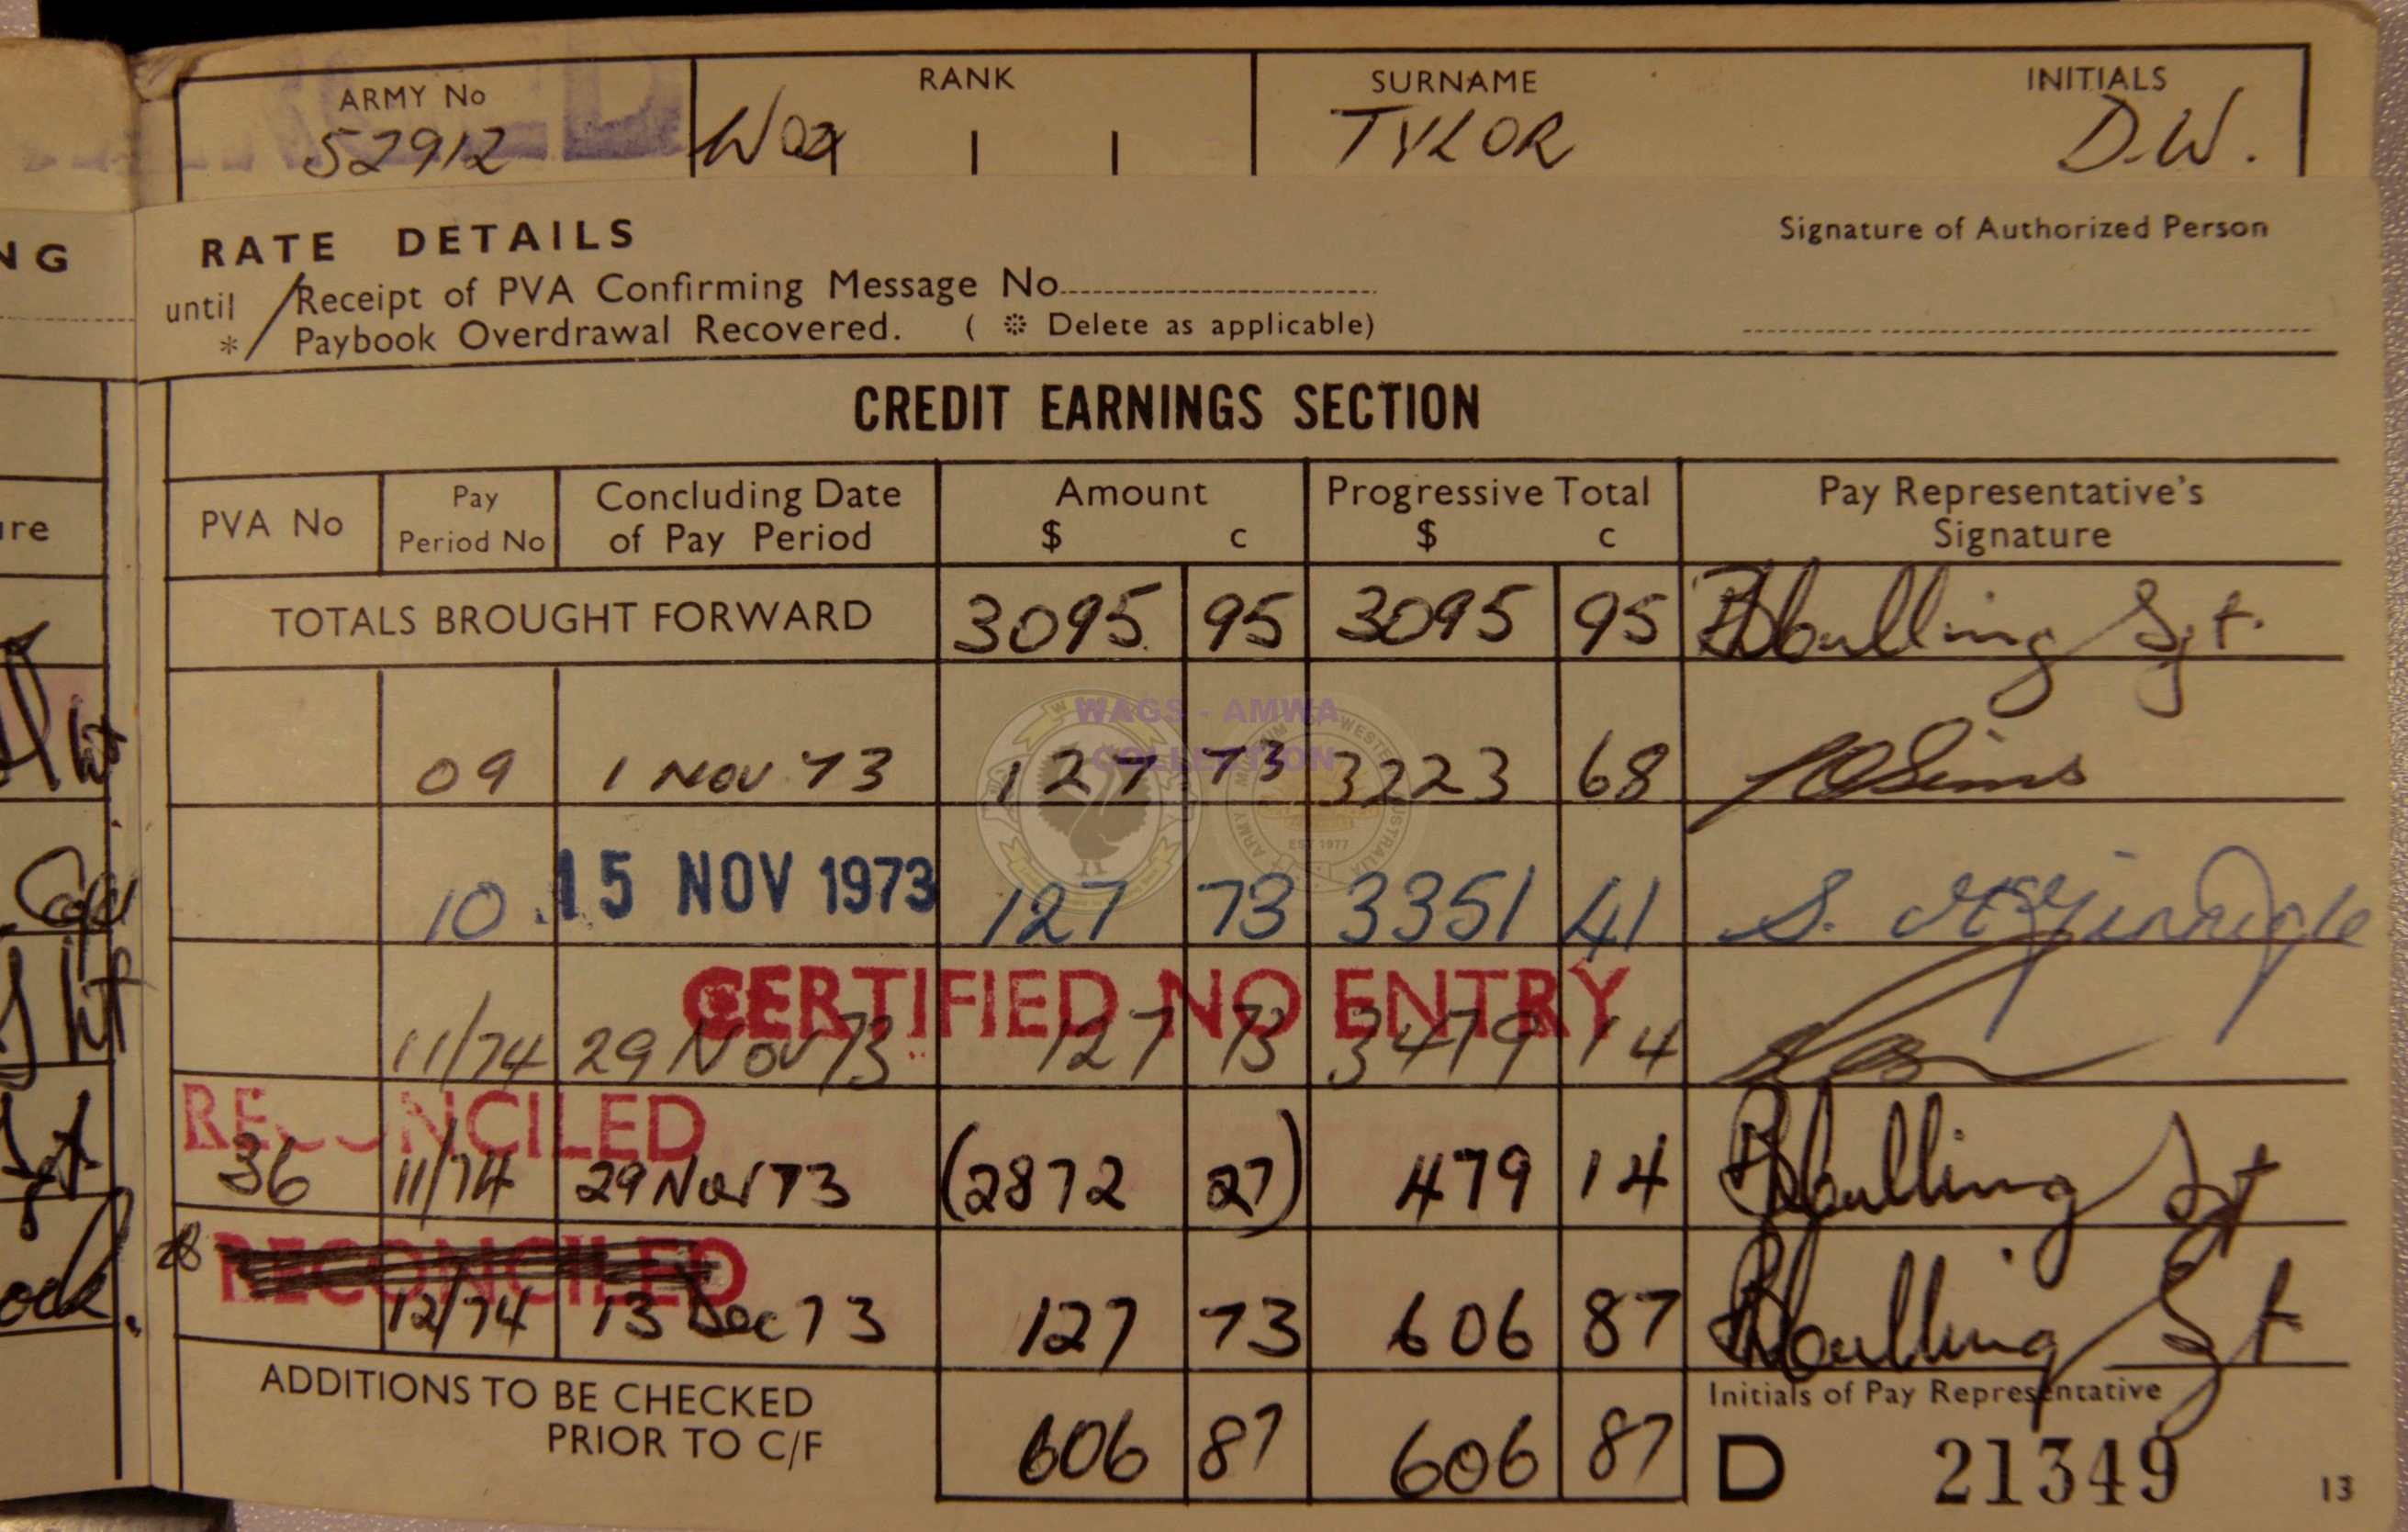 ARMY No RANK SURNAME INITIALS
52912 WO2 TYLOR D.W.
NG
RATE DETAILS Signature of Authorized Person
until / Receipt of PVA Confirming Message No
* / Paybook Overdrawal Recovered. ( * Delete as applicable)
CREDIT EARNINGS SECTION
PVA No Pay Period No Concluding Date of Pay Period Amount $ c Progressive Total $ c Pay Representative's Signature
TOTALS BROUGHT FORWARD 3095 95 3095 95 Sgt.
WAGS - AMWA
COLLECTION
09 1 NOV 73 127 73 3223 68 Sims
EST 1977
10 15 NOV 1973 127 73 3351 41 S.
CERTIFIED NO ENTRY
11/74 29 Nov 73 127 73 3479 14
RECONCILED
36 11/74 29 Nov 73 (2872 27) 479 14 Sgt
RECONCILED
12/74 13 Dec 73 127 73 606 87 Sgt
ADDITIONS TO BE CHECKED
PRIOR TO C/F 606 87 606 87
Initials of Pay Representative
D 21349 13